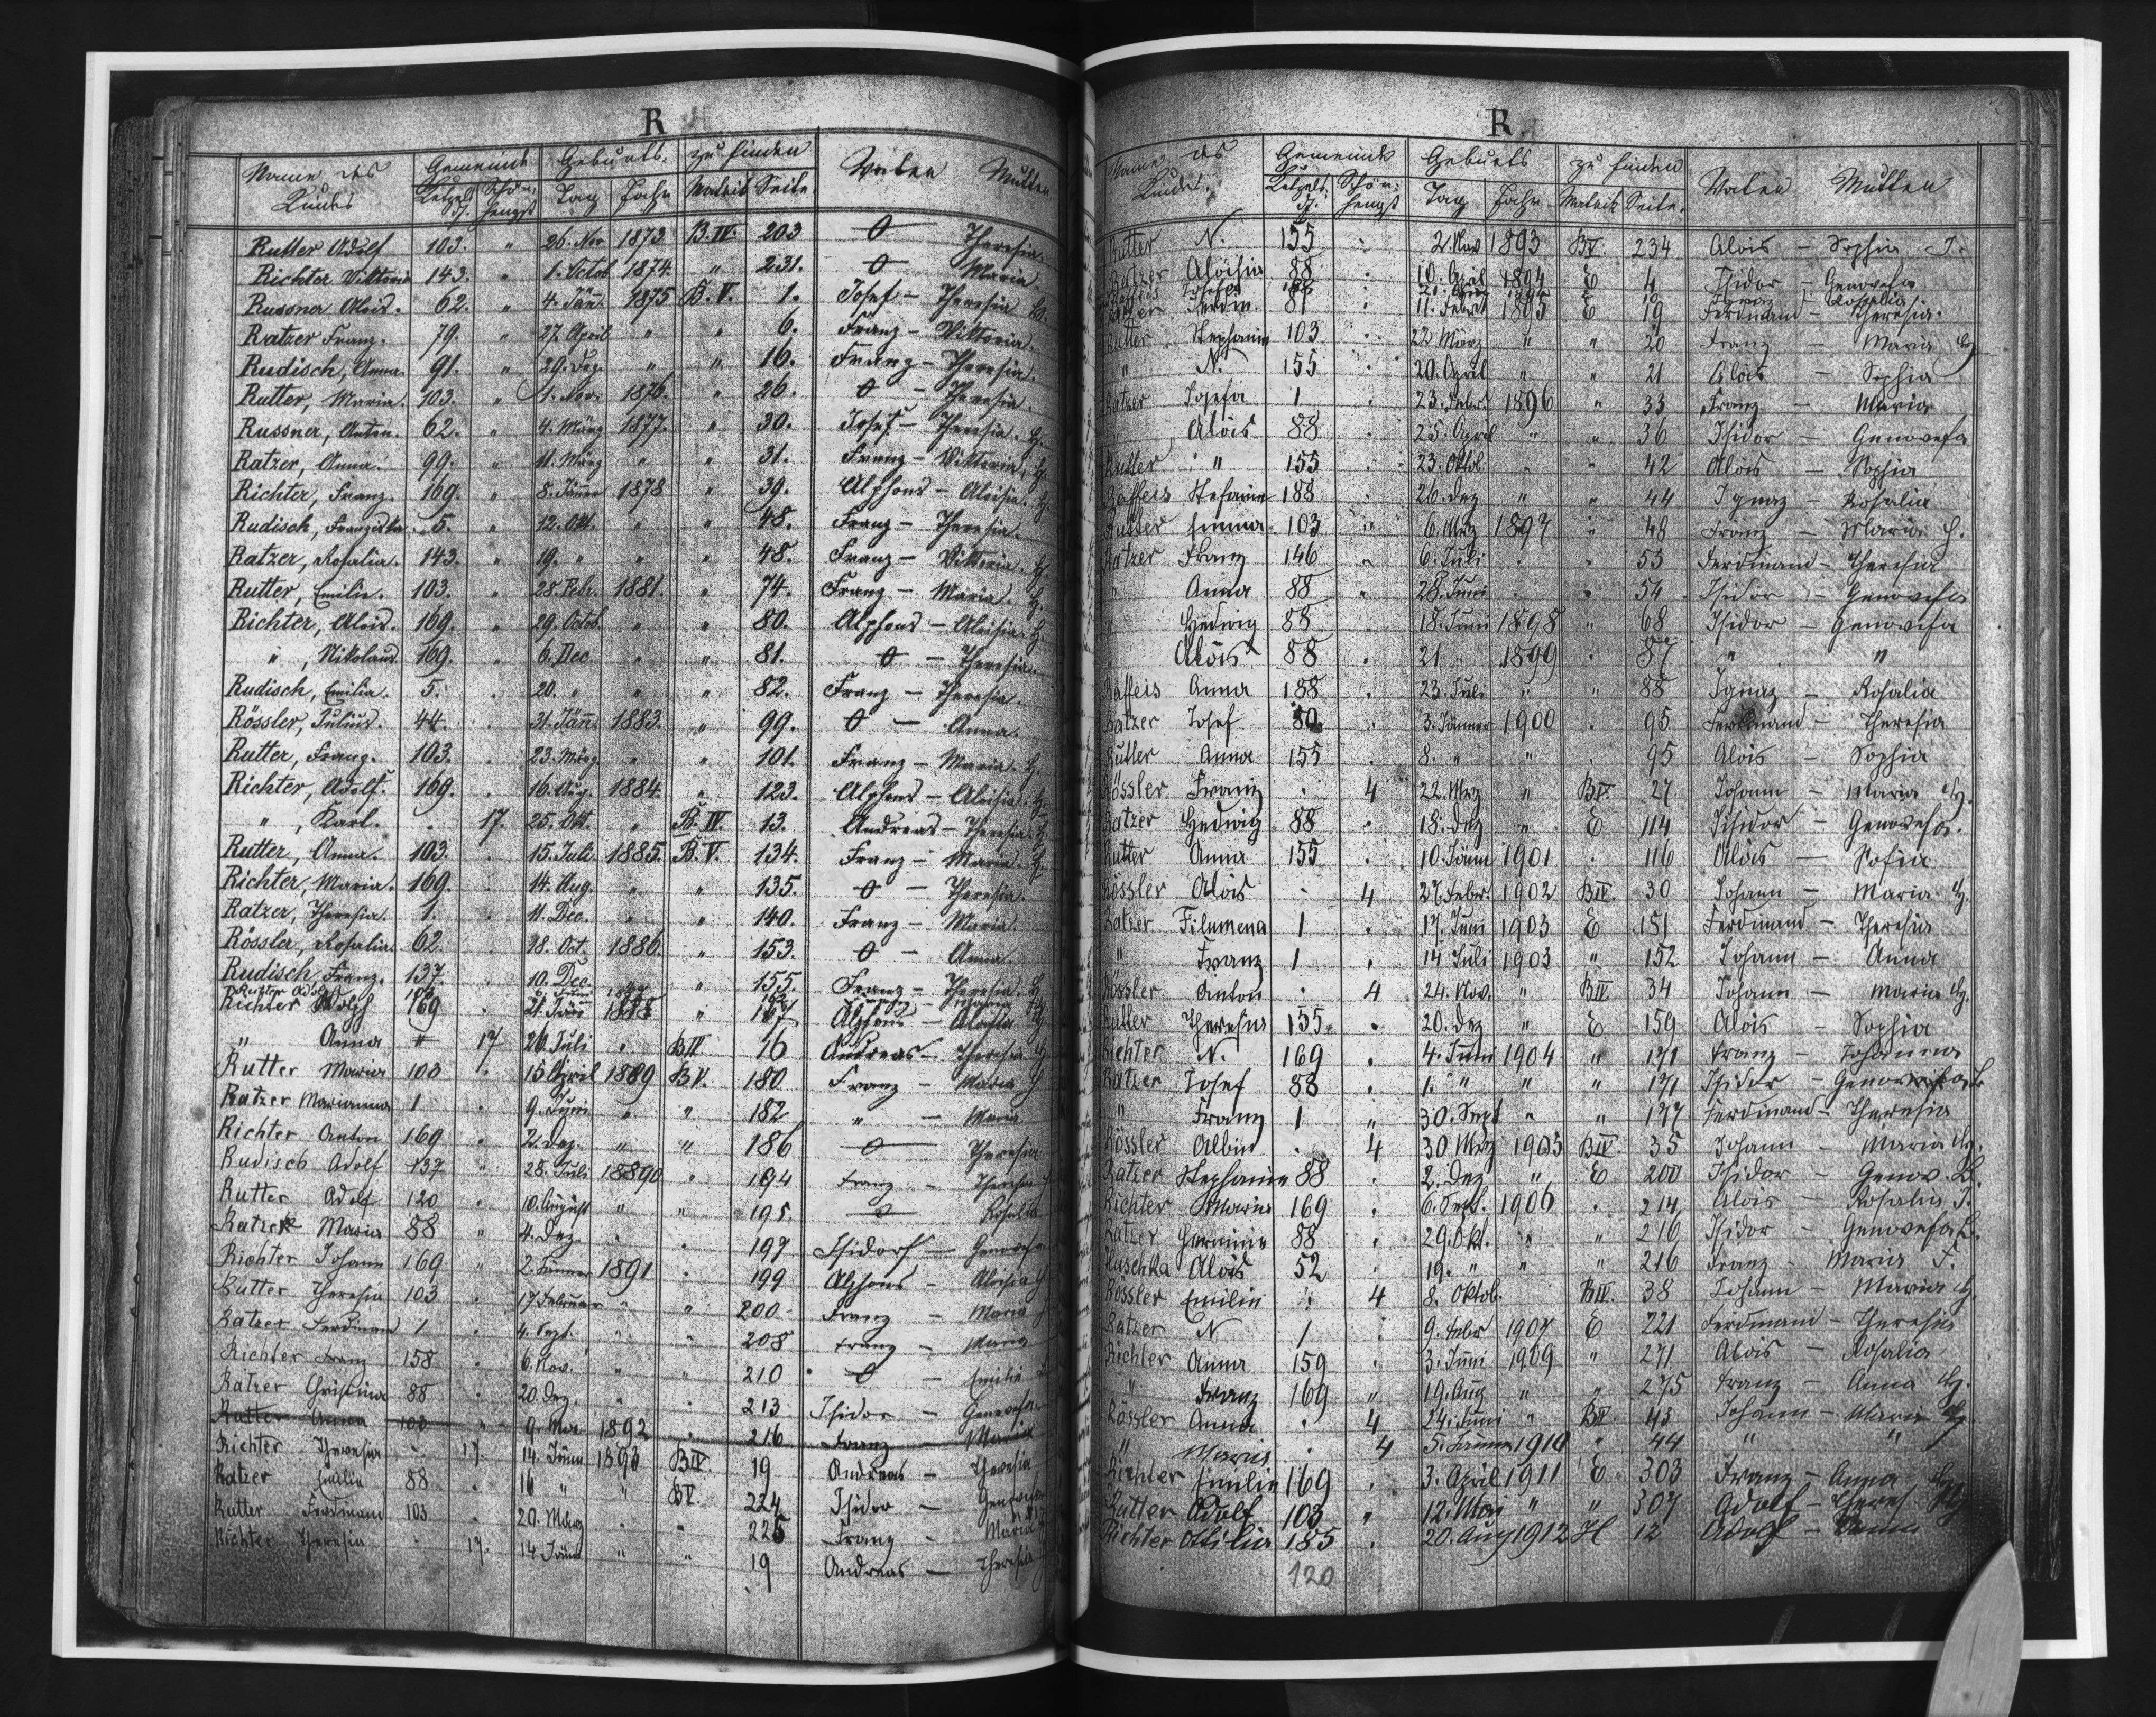 R
Name des Kindes Gemeinde Geburts- zu finden Vater Mutter
Schönhengst Tag Jahr Matrik Seite.
Rutter Adolf 103. " 26. Nov 1873 B.IV. 203 0 Theresia
Richter Viktoria 143. " 1. Octob 1874. " 231. 0 Maria
Russner Alois. 62. " 4. Jän. 1875 B.V. 1. Josef – Theresia H.
Ratzer Franz. 79. " 27. April " " 6. Franz – Viktoria.
Rudisch, Anna. 91. " 29. Dez. " " 16. Franz – Theresia.
Rutter, Maria. 103. " 1. Nov. 1876. " 26. 0 – Theresia.
Russner, Anton. 62. " 4. März 1877. " 30. Josef – Theresia. H.
Ratzer, Anna. 99. " 11. März " " 31. Franz – Viktoria, H.
Richter, Franz. 169. " 8. Jänner 1878 " 39. Alphons – Aloisia. H.
Rudisch, Franziska. 5. " 12. Okt. " " 48. Franz – Theresia.
Ratzer, Rosalia. 143. " 19. " " " 48. Franz – Viktoria. H.
Rutter, Emilie. 103. " 28. Febr. 1881. " 74. Franz – Maria. H.
Richter, Alois. 169. " 29. Octob. " " 80. Alphons – Aloisia. H.
" , Nikolaus. 169. " 6. Dec. " " 81. 0 – Theresia.
Rudisch, Emilia. 5. . 20. " " " 82. Franz – Theresia.
Rössler, Julius. 44. . 31. Jän. 1883. " 99. 0 – Anna.
Rutter, Franz. 103. . 23. März. " " 101. Franz – Maria. H.
Richter, Adolf. 169. . 16. Aug. 1884. " 123. Alphons – Aloisia. H.
" , Karl. . 17. 25. Okt. " B.IV. 13. Andreas – Theresia. H.
Rutter, Anna. 103. . 15. Juli. 1885. B.V. 134. Franz – Maria. H.
Richter, Maria. 169. . 14. Aug. " " 135. 0 – Theresia.
Ratzer, Theresia. 1. . 11. Dec. " " 140. Franz – Maria.
Rössler, Rosalia. 62. 18. Oct. 1886. " 153. 0 – Anna.
Rudisch Franz. 137. 10. Dec. " 155. Franz – Theresia. H
Rutter Adolf Juni Maria
Richter Adolf 169 . 21. Jän 1888 " 167 Alphons – Aloisia H
" Anna " 17 20. Juli " BIV. 16 Andreas – Theresia H
Rutter Maria 103 . 15 April 1889 BV. 180 Franz – Maria H
Ratzer Marianna 1 . 9. Juni " " 182 " – Maria.
Richter Anton 169 . 2. Dez. " " 186 0 Theresia
Rudisch Adolf 137 " 28. Juli 1890 " 194 Franz – Theresia
Rutter Adolf 120 . 10. August " " 195. 0 Rosalia
Ratzer Maria 88 " 4. Dez. " " 197 Isidor – Genovefa
Richter Johann 169 " 2. Jänner 1891 . 199 Alphons – Aloisia H
Rutter Theresia 103 . 17 Februar " " 200 Franz – Maria
Ratzer Ferdinand 1 . 4. Sept. " " 208 Franz – Maria
Richter Franz 158 . 6. Nov. " " 210 0 – Emilie
Ratzer Christina 88 . 20. Dez. " " 213 Isidor – Genovefa
Rutter Anna 103 " 9. Mai 1892 " 216 Franz – Maria
Richter Theresia . 17. 14. Jänn 1893 BIV. 19 Andreas – Theresia
Ratzer Emilia 88 . 16 " " BV. 224 Isidor – Genovefa
Rutter Ferdinand 103 . 20. März " " 225 Franz – Maria
Richter Theresia . 17. 14 Jänn " " 19 Andreas – Theresia
R.
Name des Kindes. Gemeinde Geburts zu finden Vater Mutter
Schönhengst Tag Jahr Matrik Seite.
Rutter N. 155 . 2. Nov 1893 BV. 234 Alois – Sophia
Ratzer Aloisia 88 . 10. April 1894 E 4 Isidor – Genovefa
Raffeis Josefa 188 Ignaz – Rosalia
Ratzer Ferdin. 81 . 11. Febr 1895 E 19 Ferdinand – Theresia.
Rutter Stephanie 103 . 22 März " " 20 Franz – Maria H
" N. 155 . 20. April " " 21 Alois – Sophia
Ratzer Josefa 1 . 23. Febr. 1896 " 33 Franz – Maria
" Alois 88 . 25. April " " 36 Isidor – Genovefa
Rutter " 155 . 23. Oktob. " " 42 Alois – Sophia
Raffeis Stefanie 188 . 26. Dez " " 44 Ignaz – Rosalia
Rutter Emma 103 " 6. Mrz 1897 " 48 Franz – Maria H.
Ratzer Franz 146 " 6. Juli . " 53 Ferdinand – Theresia
" Anna 88 " 28. Juni . " 54 Isidor – Genovefa
" Hedwig 88 . 18. Juni 1898 " 68 Isidor – Genovefa
" Alois 88 . 21 " 1899 . 87 " "
Raffeis Anna 188 . 23. Juli " " 88 Ignaz – Rosalia
Ratzer Josef 80 . 3. Jänner 1900 . 95 Ferdinand – Theresia
Rutter Anna 155 . 8. " " . 95 Alois – Sophia
Rössler Franz . 4 22. Mrz " BIV. 27 Johann – Maria H.
Ratzer Hedwig 88 . 18. Dez " E 114 Isidor – Genovefa.
Rutter Anna 155 . 10. Jänn 1901 . 116 Alois – Sofia
Rössler Alois . 4 27. Febr. 1902 BIV. 30 Johann – Maria H.
Ratzer Filumena 1 . 17. Juni 1903 E 151 Ferdinand – Theresia
" Franz 1 . 14 Juli 1903 " 152 Johann – Anna
Rössler Anton . 4 24. Nov. " BIV 34 Johann – Maria H.
Rutter Theresia 155. . 20. Dez " E 159 Alois – Sophia
Richter N. 169 . 4. Juni 1904 " 171 Franz – Johanna
Ratzer Josef 88 . 1. " " " 171 Isidor – Genovefa
" Franz 1 " 30. Sept " " 177 Ferdinand – Theresia
Rössler Albin . 4 30 Mrz 1905 BIV. 35 Johann – Maria H.
Ratzer Stephanie 88 . 2. Dez " E 200 Isidor – Genov.
Richter Maria 169 . 6. Sept. 1906 . 214 Alois – Rosalia
Ratzer Hermine 88 . 29. Okt. " " 216 Isidor – Genovefa
Ruschka Alois 52 . 19. " " " 216 Franz – Maria
Rössler Emilie . 4 8. Oktob. BIV. 38 Johann – Maria H.
Ratzer N 1 . 9. Febr 1907 E 221 Ferdinand – Theresia
Richter Anna 159 . 3. Juni 1909 " 271 Alois – Rosalia
" Franz 169 " 19. Aug " " 275 Franz – Anna H.
Rössler Anna . 4 24. Juni " BIV 43 Johann – Maria H.
" Maria . 4 5. Jänner 1910 " 44 " "
Richter Emilie 169 . 3. April 1911 E 303 Franz – Anna H
Rutter Adolf 103 " 12. Mai " " 307 Adolf – Theres
Richter Ottilia 185 . 20. Aug 1912 H 12 Adolf – Anna
120